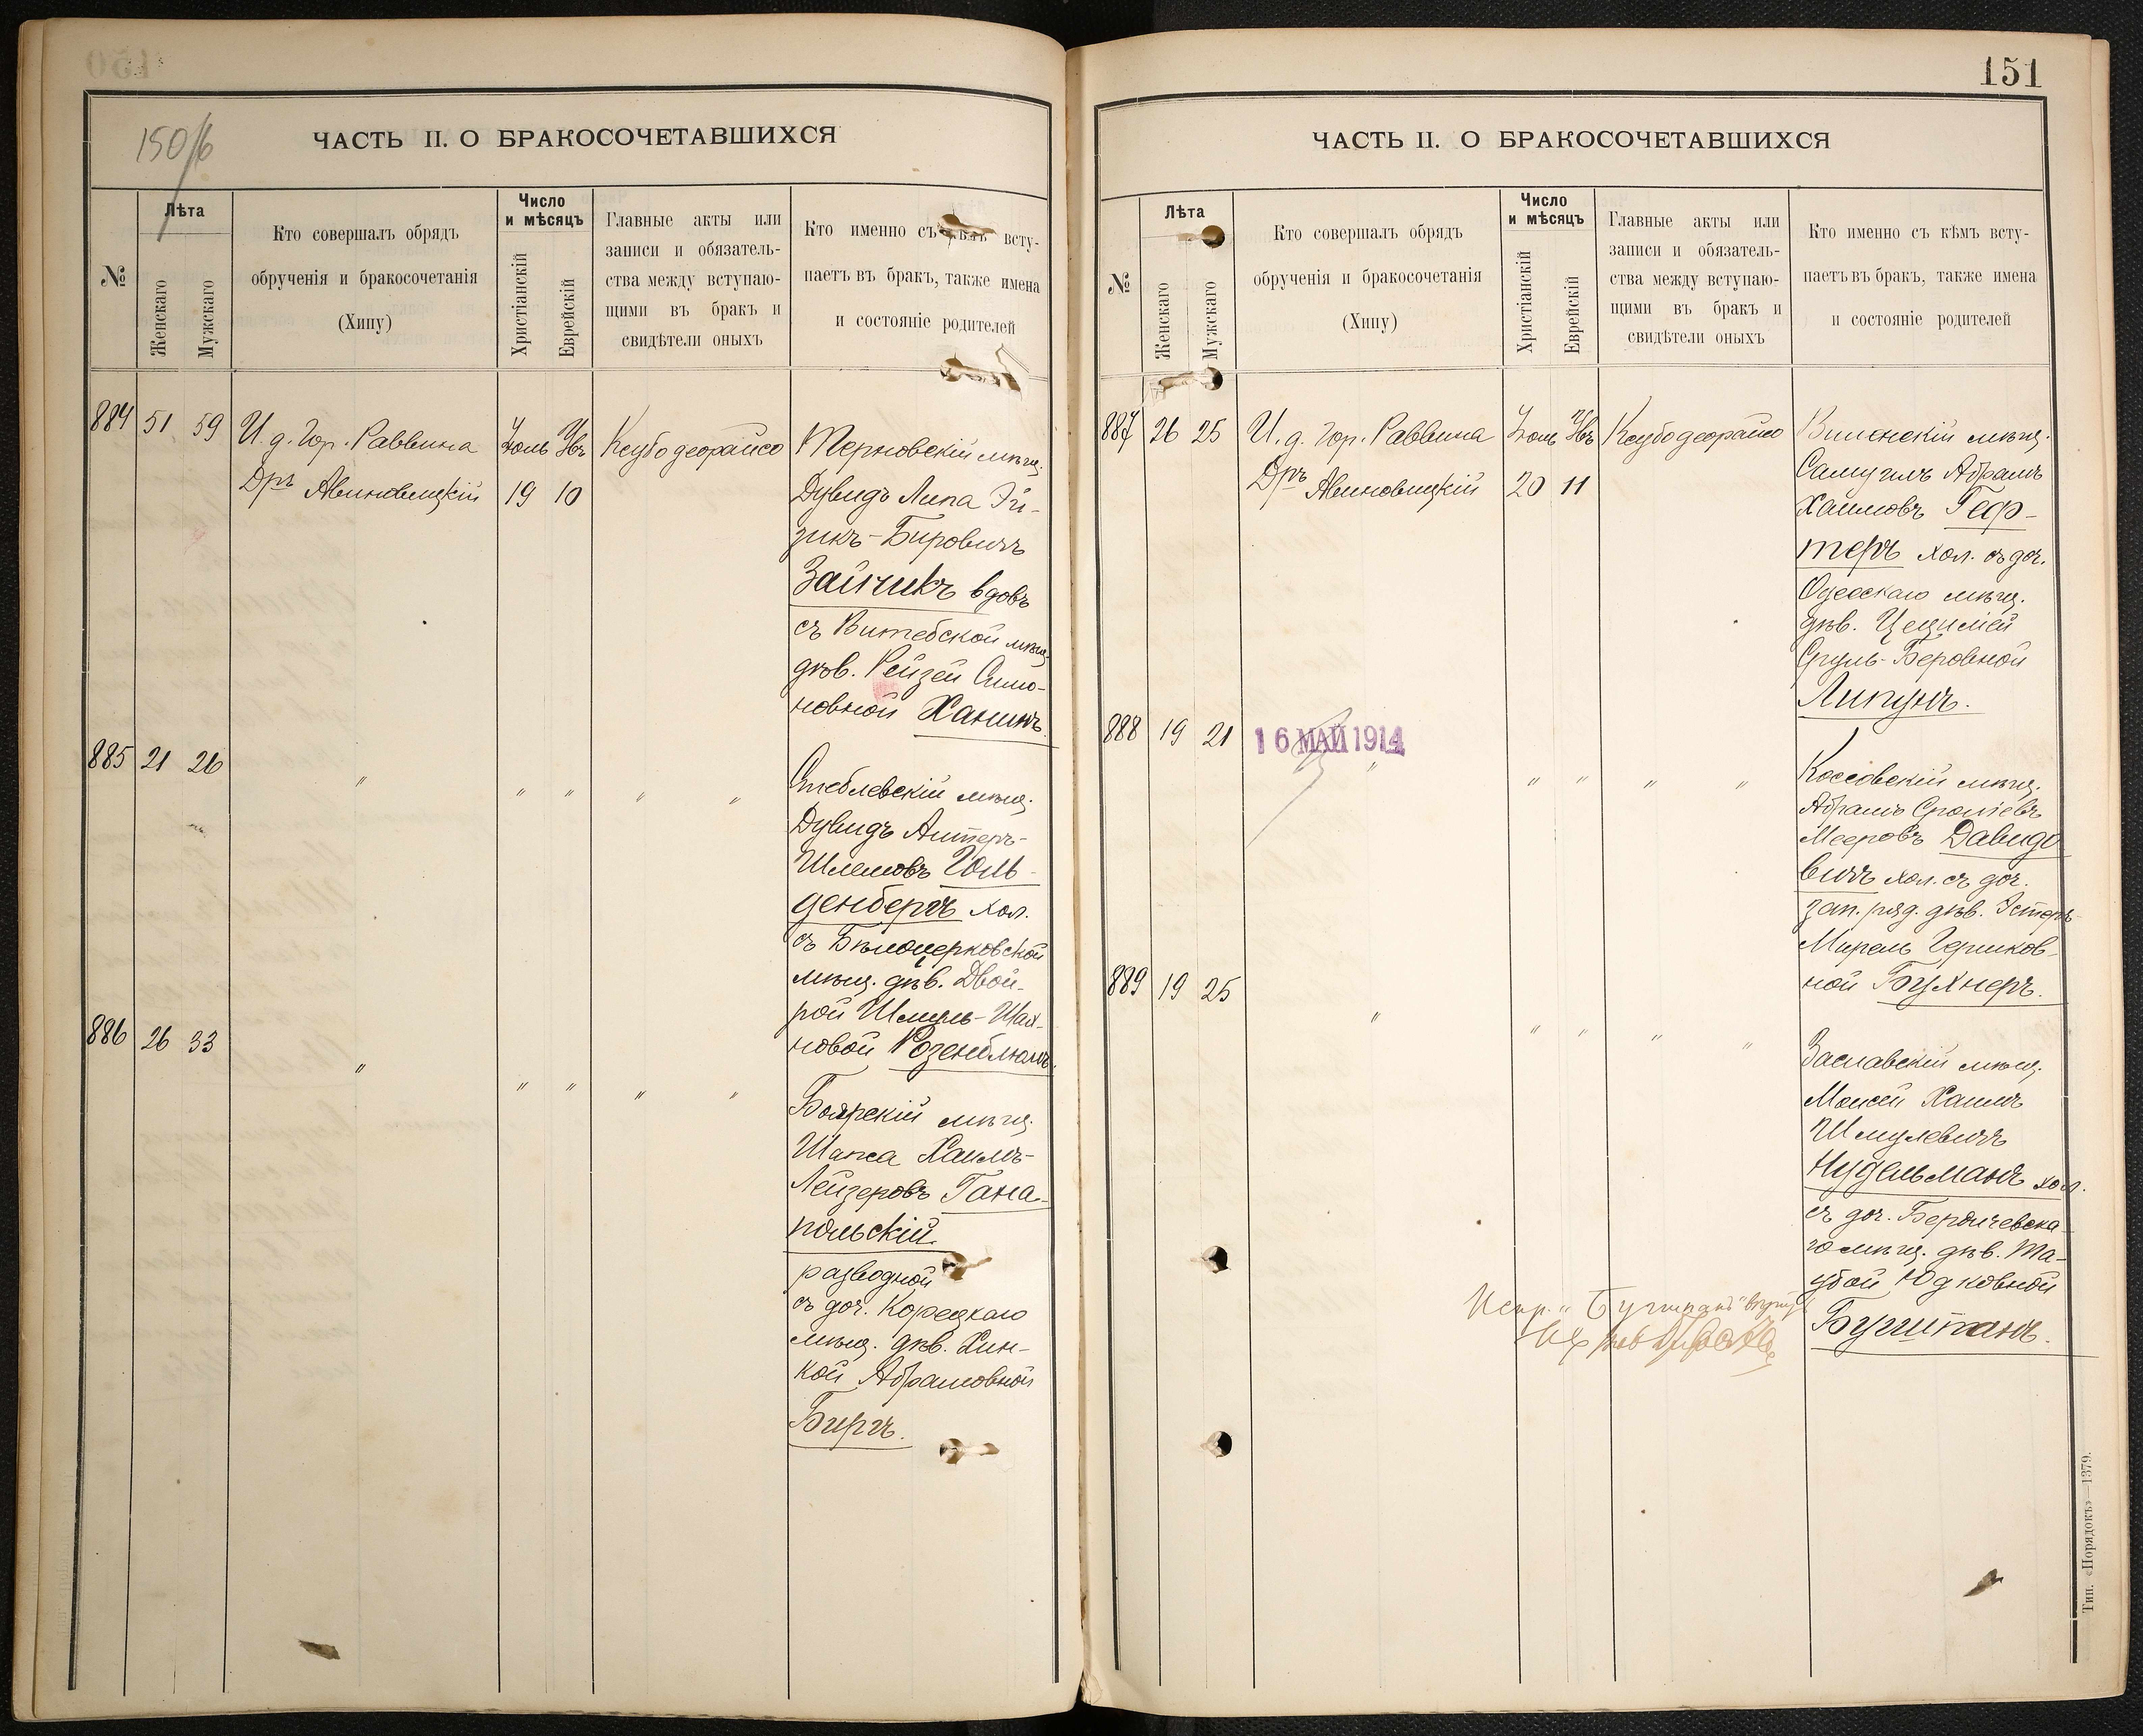 150/6
ЧАСТЬ II. О БРАКОСОЧЕТАВШИХСЯ
№
Лѣта
Женскаго
Мужскаго
Кто совершалъ обрядъ
обрученія и бракосочетанія
(Хипу)
Число
и мѣсяцъ
Христіанскій
Еврейскій
Главные акты или
записи и обязатель-
ства между вступаю-
щими въ бракъ и
свидѣтели оныхъ
Кто именно съ всту-
паетъ въ бракъ, также имена
и состояніе родителей
884 51 59
И. д. Гор. Раввина
Дръ Авиновицкій
Іюль
19 10
Ксубо деорайсо
Терновскій мѣщ.
Дувидъ Липа Эй-
зикъ-Бировичъ
Зайчикъ вдовъ
съ Витебской мѣщ.
дѣв. Рейзей Симо-
новной Ханинъ.
885 21 26
" " " " "
Стеблевскій мѣщ.
Дувидъ Алтеръ-
Шлемовъ Голь-
денбергъ хол.
съ Бѣлоцерковской
мѣщ. дѣв. Двой-
рой Шмуль-Шах-
новой Розенблюмъ.
886 26 33
" " " " "
Боярскій мѣщ.
Шапса Хаимъ-
Лейзеровъ Гана-
польскій
разводной
съ доч. Корецкаго
мѣщ. дѣв. Хин-
кой Абрамовной
Биргъ.
151
ЧАСТЬ II. О БРАКОСОЧЕТАВШИХСЯ
№
Лѣта
Женскаго
Мужскаго
Кто совершалъ обрядъ
обрученія и бракосочетанія
(Хипу)
Число
и мѣсяцъ
Христіанскій
Еврейскій
Главные акты или
записи и обязатель-
ства между вступаю-
щими въ бракъ и
свидѣтели оныхъ
Кто именно съ кѣмъ всту-
паетъ въ бракъ, также имена
и состояніе родителей
887 26 25
И. д. Гор. Раввина
Дръ Авиновицкій
Іюль
20 11
Ксубо деорайсо
Виленскій мѣщ.
Самуилъ Абрамъ
Хаимовъ Геф-
теръ хол. съ доч.
Одесскаго мѣщ.
дѣв. Цецилией
Сруль-Беровной
Липунъ.
888 19 21
16 МАЙ 1914
" " " " "
Коссовскій мѣщ.
Абрамъ Сроліевъ
Мееровъ Давидо
вичъ хол. съ доч.
зап. ряд. дѣв. Эстеръ-
Мирель Гершков-
ной Бухнеръ.
889 19 25
" " " " "
Заславскій мѣщ.
Моисей Хаимъ
Шмулевичъ
Нудельманъ хол.
съ доч. Бердичевска
го мѣщ. дѣв. Та-
убой Юдковной
Бухштанъ.
Тип. «Порядокъ»—1379.